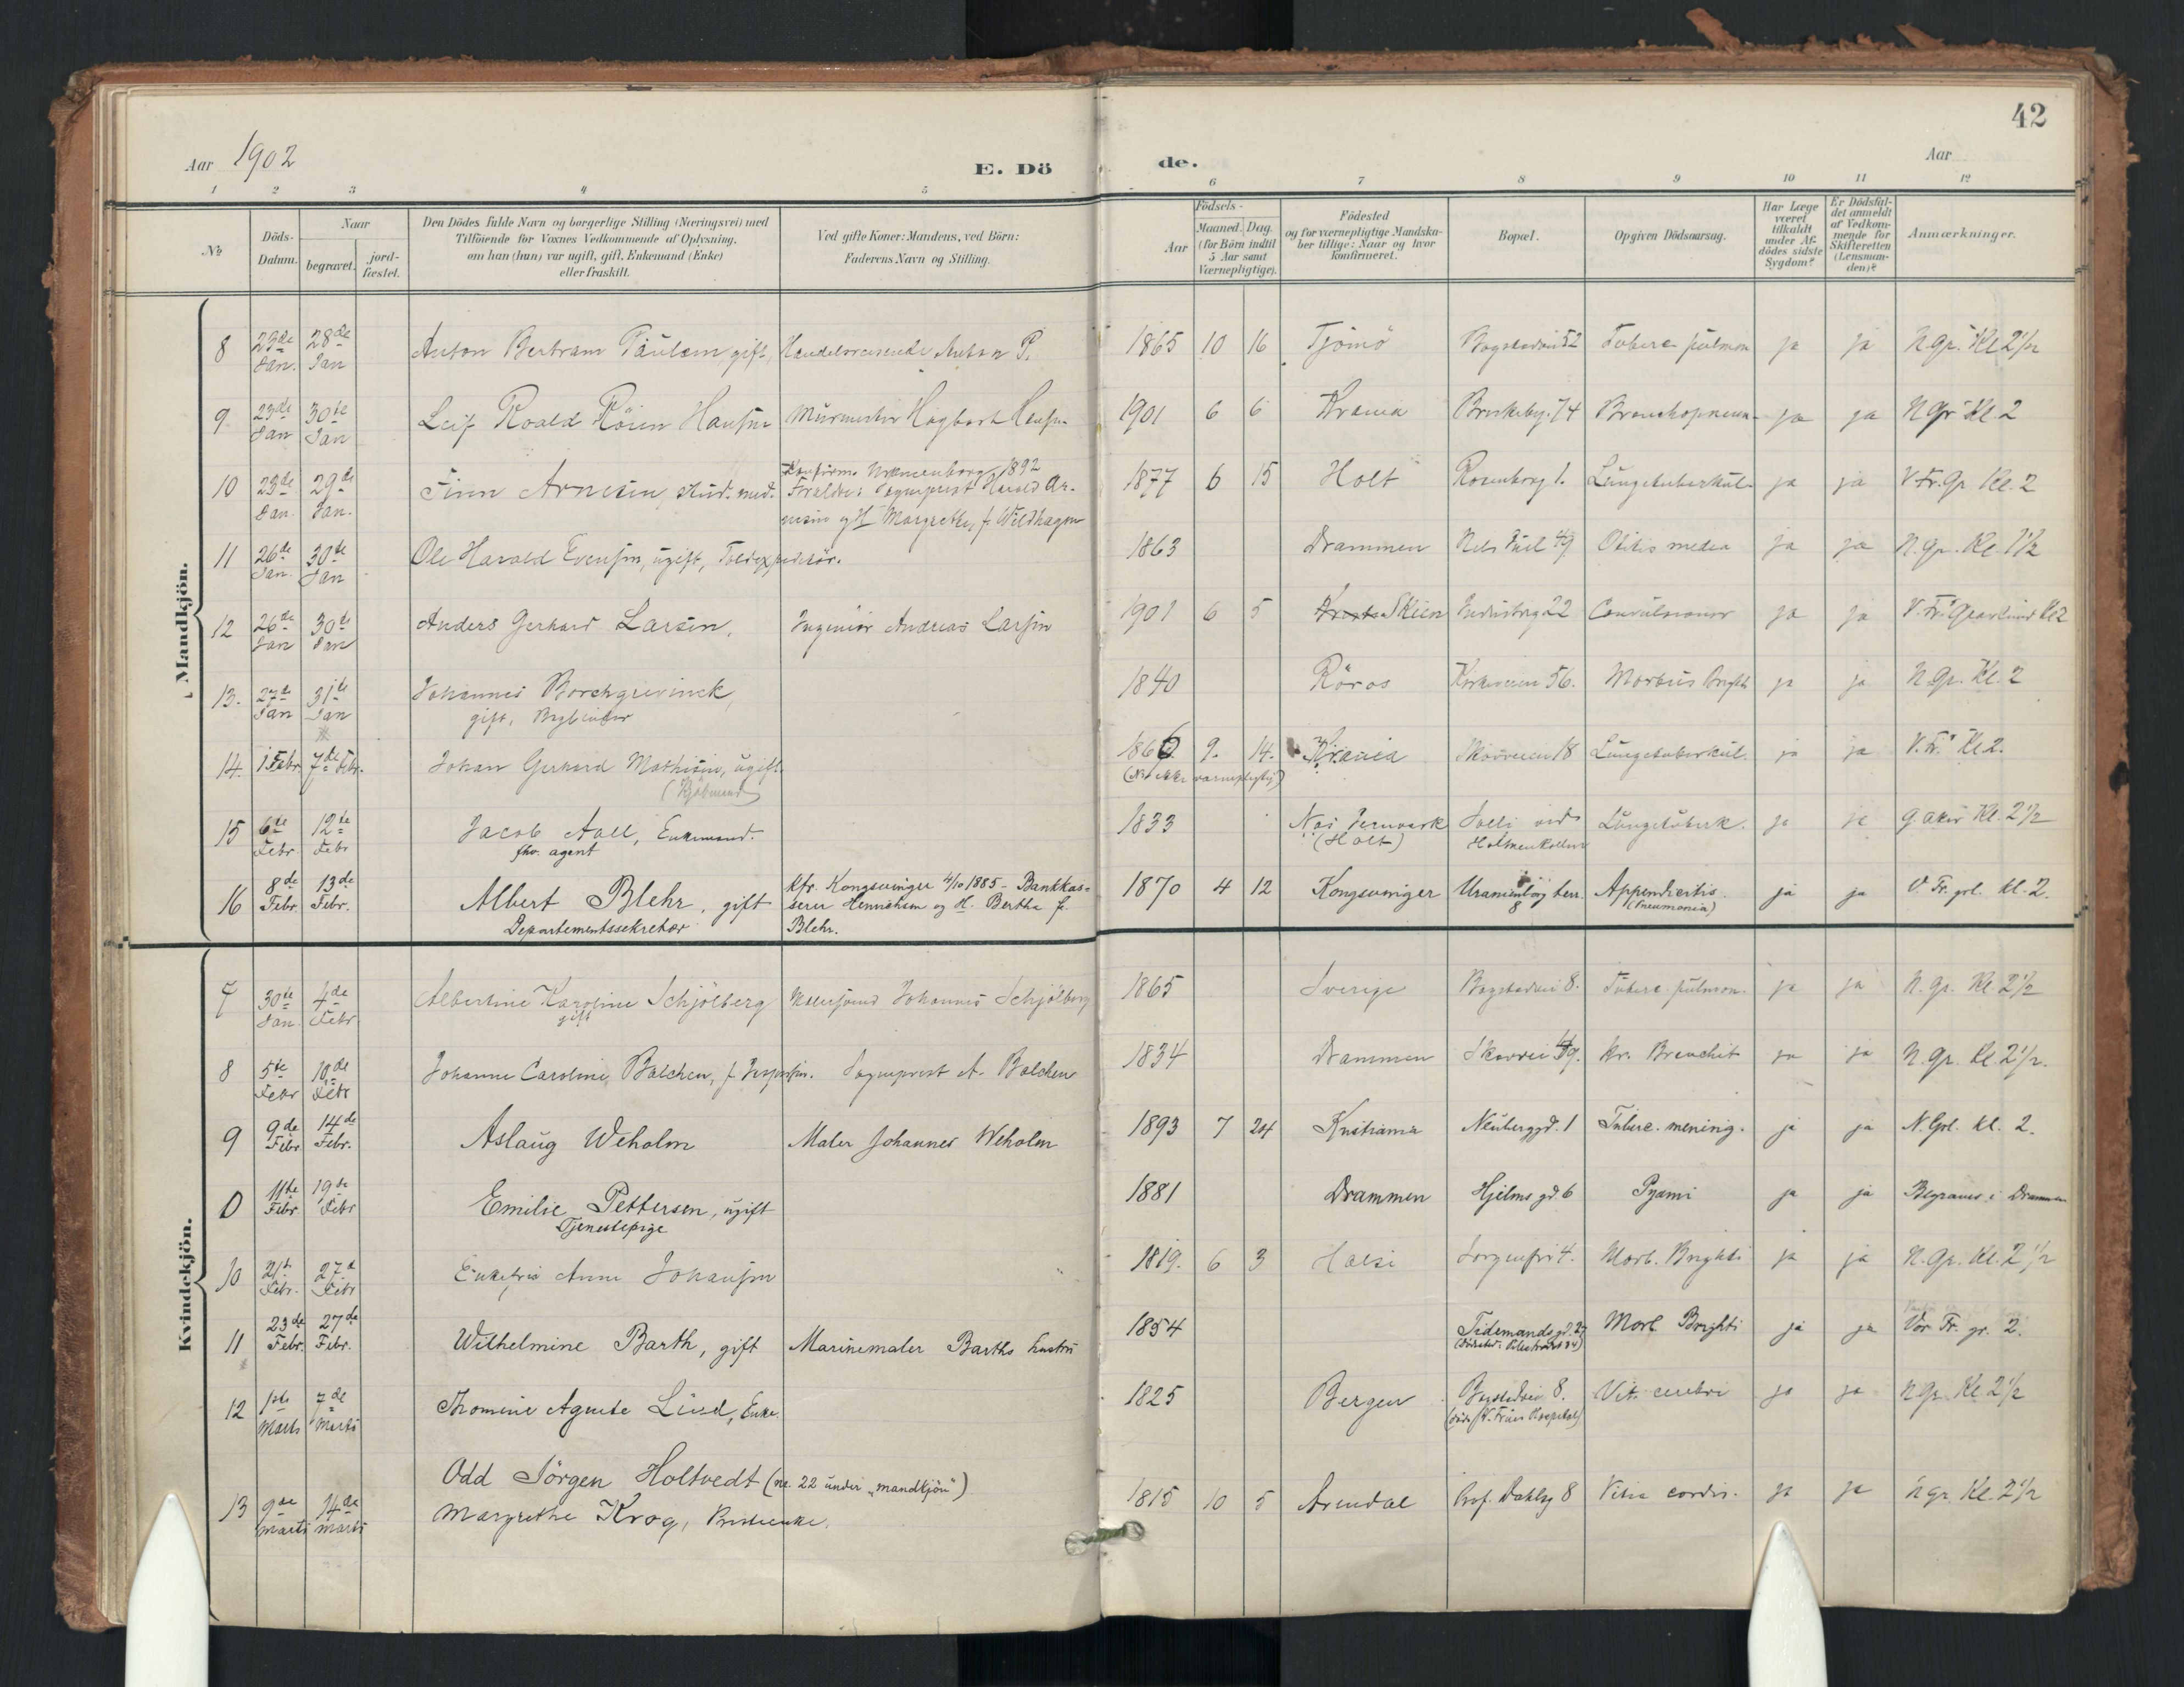 42
Aar 1902
E. Döde.
Aar
1 2 3 4 5 6 7 8 9 10 11 12
No.
Döds-Datum.
Naar
begravet.
jord-fæstet.
Den Dödes fulde Navn og borgerlige Stilling (Næringsvei) med
Tilföiende for Voxnes Vedkommende af Oplysning,
om han (hun) var ugift, gift, Enkemand (Enke)
eller fraskilt.
Ved gifte Koner: Mandens, ved Börn:
Faderens Navn og Stilling.
Födsels-
Aar
Maaned. Dag.
(for Börn indtil
5 Aar samt
Værnepligtige).
Födested
og for værnepligtige Mandska-
ber tillige: Naar og hvor
konfirmeret.
Bopæl.
Opgiven Dödsaarsag.
Har Læge
været
tilkaldt
under Af-
dödes sidste
Sygdom?
Er Dödsfal-
det anmeldt
af Vedkom-
mende for
Skifteretten
(Lensman-
den)?
Anmærkninger.
Mandkjön.
8 23de Jan. 28de Jan Anton Bertram Paulsen gift, Handelsreisende Anton P. 1865 10 16 Tjömö Bogstadvei 52 Tuberc. pulmon ja ja N. gr. Kl 2 1/2
9 23de Jan 30te Jan Leif Roald Röien Hansen Murmester Hagbart Hansen 1901 6 6 Krania Briskeby. 74 Bronchopneum. ja ja N gr Kl. 2
10 23de Jan. 29de Jan. Finn Arnesen, stud. med. Konfirm. Uranienborg 1892
Forældre: Sogneprest Harald Ar-
nesen og H. Margrethe, f. Wildhagen 1877 6 15 Holt Rosenborg 1. Lungetuberkul. ja ja V. Fr. Gr Kl. 2
11 26de Jan. 30te Jan Ole Harald Evensen, ugift, Toldexpeditör. 1863 Drammen Nils Juel 49 Otitis media ja ja N. gr. Kl. 1 1/2
12 26de Jan 30te Jan Anders Gerhard Larsen. Ingeniör Andreas Larsen 1901 6 5 Skien Industrig 22 Convulsioner ja ja V. Fr. Gravlund Kl 2
13. 27de Jan 31te Jan Johannes Borchgrevinck,
gift, 1840 Röros Kirkeveien 56. Morbus Brighti ja ja N. gr. Kl. 2
14. 1 Febr. 7de Febr. Johan Gerhard Mathisen, ugift
(Kjöbmand) 1866 9. 14. Krania Skovveien 18 Lungetuberkul. ja ja V. Fr. Kl 2.
(NB ikke værnepligtig)
15 6te Febr. 12te Febr Jacob Aall, Enkemand.
fhv. agent 1833 Næs Jernværk
(Holt) Solli ved
Holmenkollen Lungetuberk. ja ja Ø. aker Kl. 2 1/2
16 8de Febr. 13de Febr. Albert Blehr, gift
Departementssekretær kfr. Kongsvinger 4/10 1885 - Bankkas-
serer Henrichsen og H. Bertha f.
Blehr. 1870 4 12 Kongsvinger Uranienborg terr.
8 Appendicitis.
(Pneumonia) ja ja V. Fr. grl. kl. 2.
Kvindekjön.
7 30te Jan. 4de Febr. Albertine Karoline Schjölberg
gift Johannes Schjölberg 1865 Sverige Bogstadvei 8. Tuberc. pulmon. ja ja N. gr. Kl. 2 1/2
8 5te Febr 10de Febr Johanne Caroline Balchen, f. Jespersen. Sogneprest A. Balchen 1834 Drammen Skovvei 39. kr. Bronchit ja ja N. gr. Kl. 2 1/2.
9 9de Febr 14de Febr. Aslaug Weholm Maler Johannes Weholm 1893 7 24 Kristiania Neuberggd. 1 Tuberc. mening. ja ja N. Grl. kl. 2.
0 11te Febr 19de Febr Emilie Pettersen, ugift
Tjenestepige 1881 Drammen Hjelms gd. 6 Pyæmi ja ja Begraves i Drammen
10 21de Febr. 27de Febr Enkefru Anne Johansen 1819. 6 3 Sorgenfri 4. Morb. Brighti ja ja N. Gr. Kl. 2 1/2
11 23de Febr. 27de Febr. Wilhelmine Barth, gift Marinemaler Barths hustru 1854 Tidemands gd. 27 Morb. Brighti ja ja Vor Fr. gr. 2.
12 1ste Marts 7de Marts Thomine Agnete Lund, Enke. 1825 Bergen Bogstadvei 8.
(död i V. Frues Hospital) Vit. cerebri ja ja N gr. Kl 2 1/2
Odd Jörgen Holtvedt (no. 22 under „mandkjön")
13 9de marts 14de marts Margrethe Krog, Presteenke. 1815 10 5 Arendal Prof. Dahlsg 8 Vitia cordis. ja ja N gr. Kl. 2 1/2